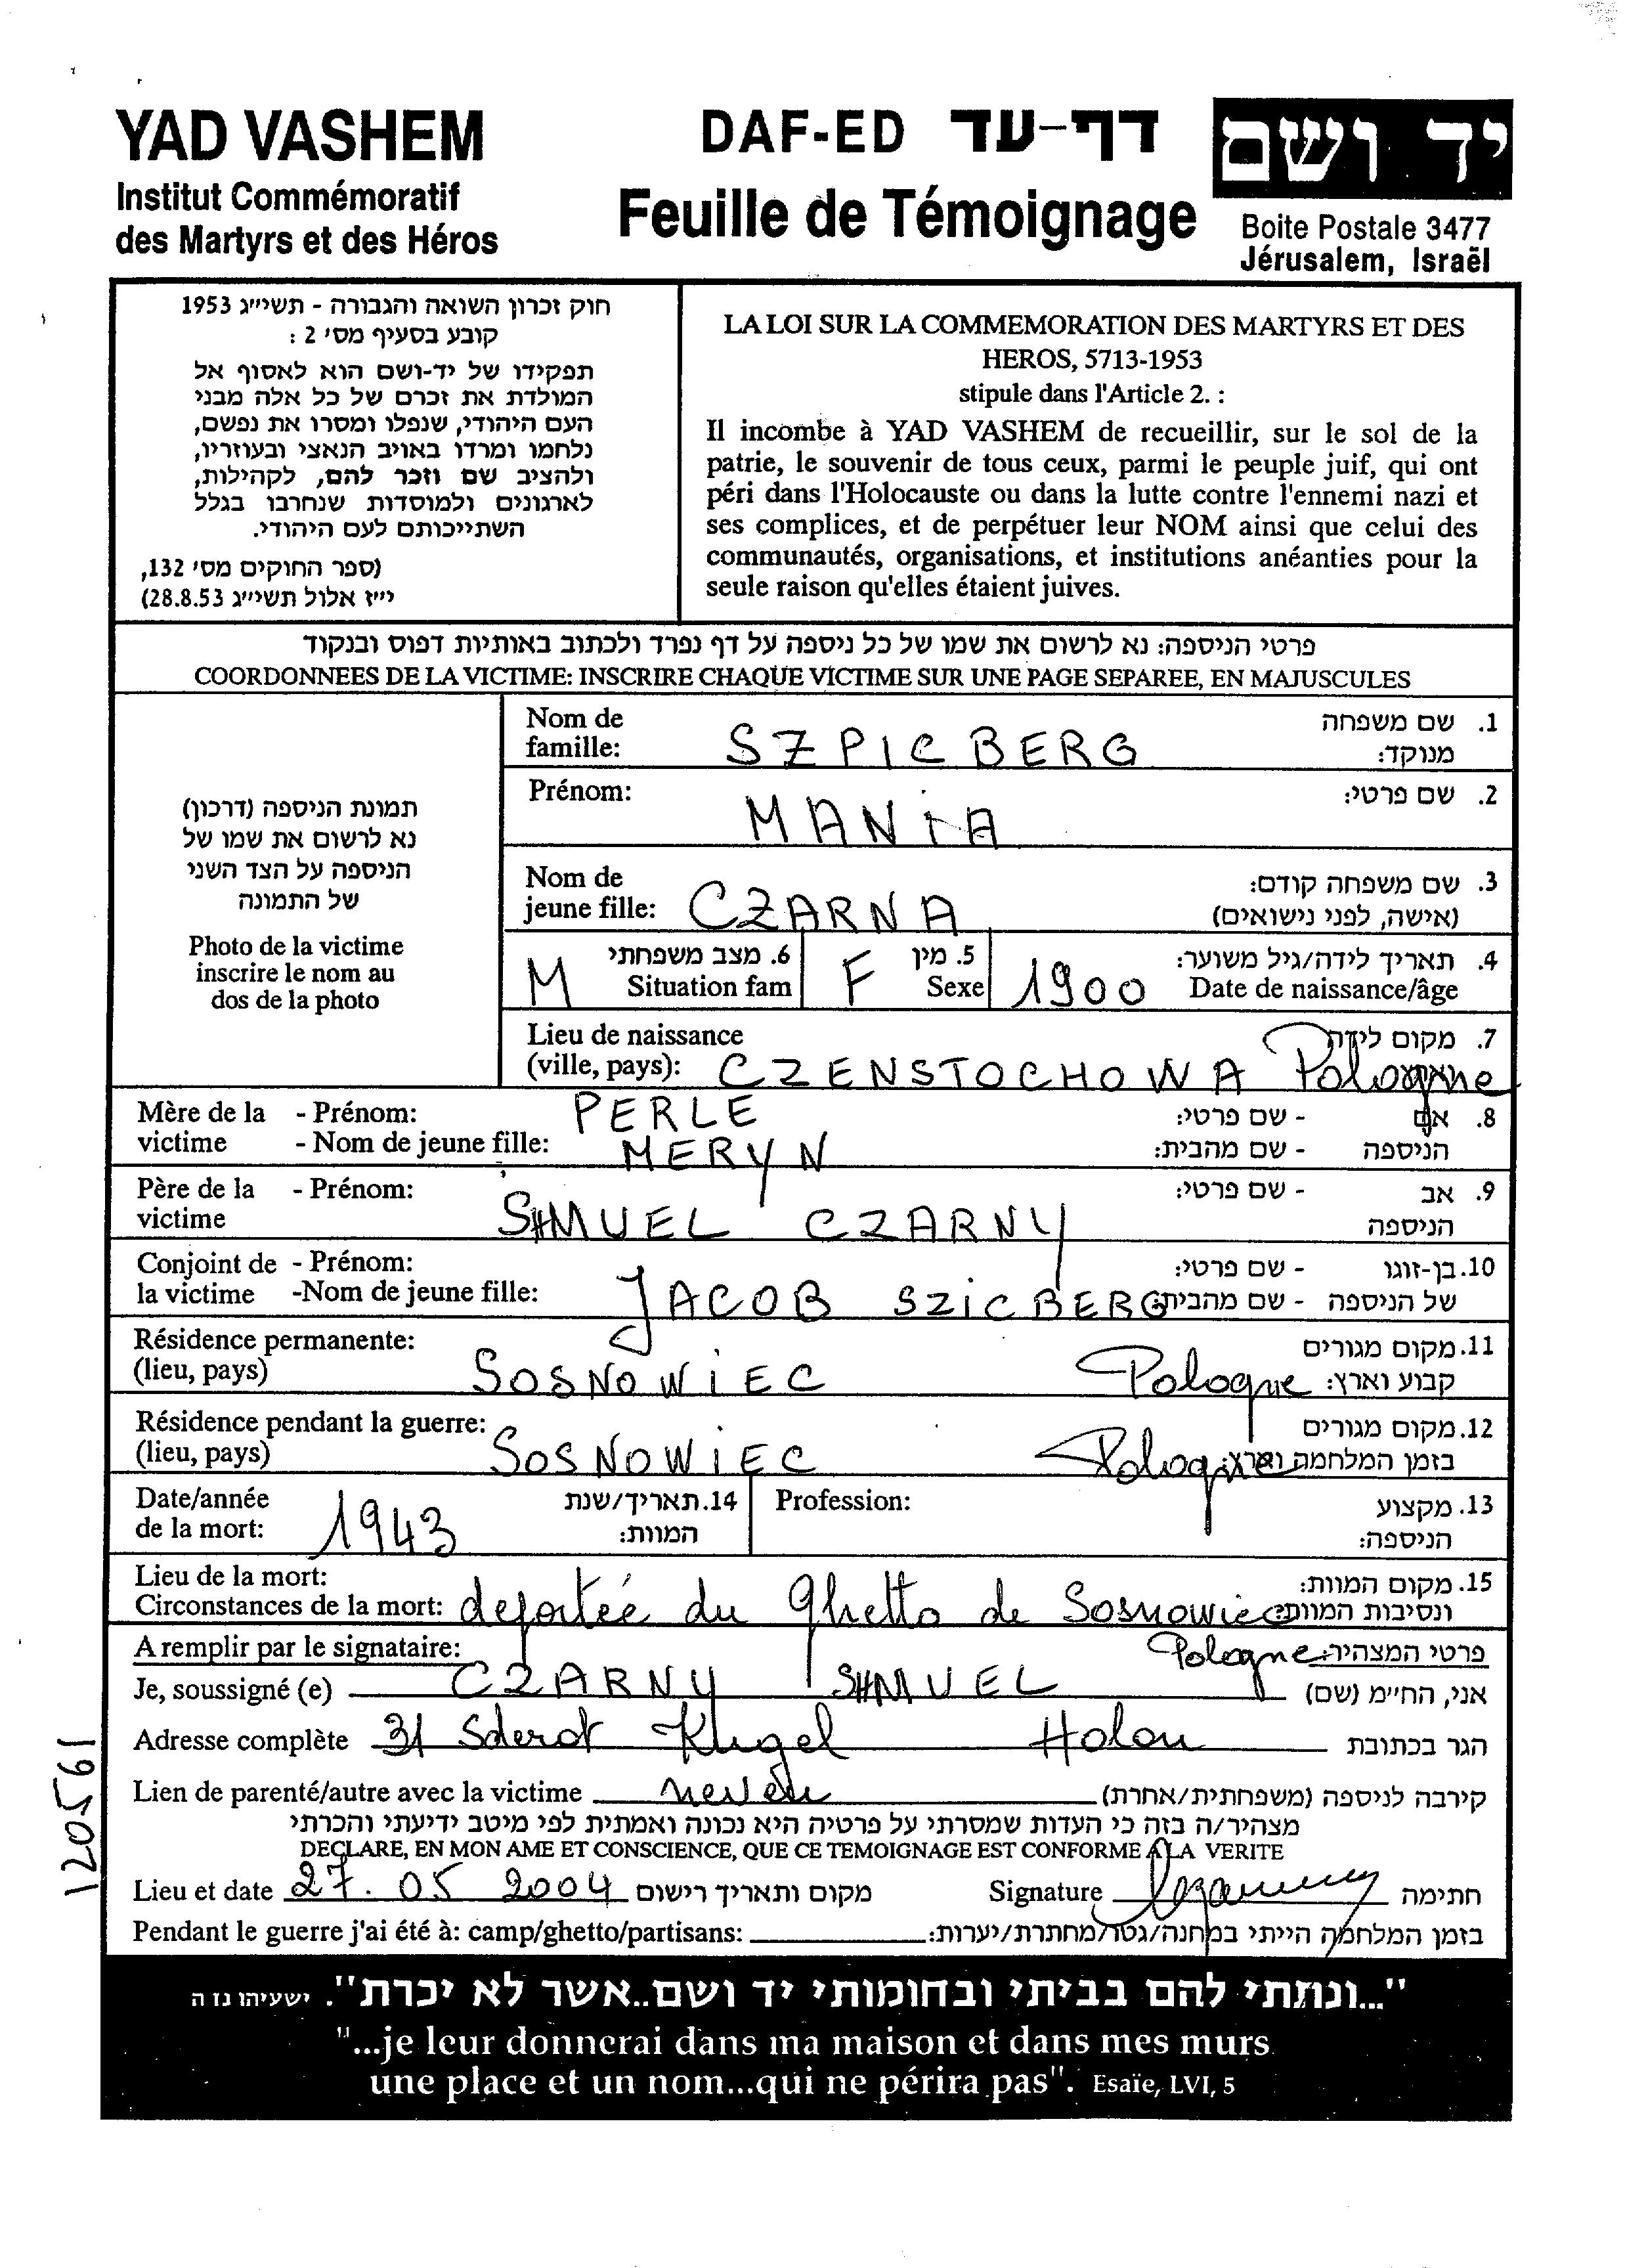 YAD VASHEM
Institut Commémoratif
des Martyrs et des Héros
DAF-ED דף-עד
Feuille de Témoignage
יד ושם
Boite Postale 3477
Jérusalem, Israël
חוק זכרון השואה והגבורה - תשי״ג 1953
קובע בסעיף מס׳ 2 :
תפקידו של יד-ושם הוא לאסוף אל
המולדת את זכרם של כל אלה מבני
העם היהודי, שנפלו ומסרו את נפשם,
נלחמו ומרדו באויב הנאצי ובעוזריו,
ולהציב שם וזכר להם, לקהילות,
לארגונים ולמוסדות שנחרבו בגלל
השתייכותם לעם היהודי.
(ספר החוקים מס׳ 132,
י״ז אלול תשי״ג 28.8.53)
LA LOI SUR LA COMMEMORATION DES MARTYRS ET DES
HEROS, 5713-1953
stipule dans l'Article 2. :
Il incombe à YAD VASHEM de recueillir, sur le sol de la
patrie, le souvenir de tous ceux, parmi le peuple juif, qui ont
péri dans l'Holocauste ou dans la lutte contre l'ennemi nazi et
ses complices, et de perpétuer leur NOM ainsi que celui des
communautés, organisations, et institutions anéanties pour la
seule raison qu'elles étaient juives.
פרטי הניספה: נא לרשום את שמו של כל ניספה על דף נפרד ולכתוב באותיות דפוס ובנקוד
COORDONNEES DE LA VICTIME: INSCRIRE CHAQUE VICTIME SUR UNE PAGE SEPAREE, EN MAJUSCULES
תמונת הניספה (דרכון)
נא לרשום את שמו של
הניספה על הצד השני
של התמונה
Photo de la victime
inscrire le nom au
dos de la photo
Nom de famille: SZPICBERG 1. שם משפחה מנוקד:
Prénom: MANIA 2. שם פרטי:
Nom de jeune fille: CZARNA 3. שם משפחה קודם: (אישה, לפני נישואים)
M 6. מצב משפחתי Situation fam F 5. מין Sexe 1900 4. תאריך לידה/גיל משוער: Date de naissance/âge
Lieu de naissance (ville, pays): CZENSTOCHOWA Pologne 7. מקום לידה
Mère de la victime - Prénom: PERLE - שם פרטי: 8. אם
- Nom de jeune fille: MERYN - שם מהבית: הניספה
Père de la victime - Prénom: SHMUEL CZARNY - שם פרטי: 9. אב הניספה
Conjoint de la victime - Prénom: - שם פרטי: 10. בן-זוגו
-Nom de jeune fille: JACOB SZICBERG - שם מהבית של הניספה
Résidence permanente: (lieu, pays) SOSNOWIEC Pologne 11. מקום מגורים קבוע וארץ:
Résidence pendant la guerre: (lieu, pays) SOSNOWIEC Pologne 12. מקום מגורים בזמן המלחמה
Date/année de la mort: 1943 14. תאריך/שנת המוות: Profession: 13. מקצוע הניספה:
Lieu de la mort: 15. מקום המוות:
Circonstances de la mort: deportée du Ghetto de Sosnowiec ונסיבות המוות
A remplir par le signataire: Pologne פרטי המצהיר:
Je, soussigné (e) CZARNY SHMUEL אני, החי״מ (שם)
Adresse complète 31 Sderot Klugel Holon הגר בכתובת
Lien de parenté/autre avec la victime neveu קירבה לניספה (משפחתית/אחרת)
מצהיר/ה בזה כי העדות שמסרתי על פרטיה היא נכונה ואמתית לפי מיטב ידיעתי והכרתי
DECLARE, EN MON AME ET CONSCIENCE, QUE CE TEMOIGNAGE EST CONFORME A LA VERITE
Lieu et date 27.05 2004 מקום ותאריך רישום Signature חתימה
Pendant le guerre j'ai été à: camp/ghetto/partisans: בזמן המלחמה הייתי במחנה/גטו/מחתרת/יערות:
120561
"...ונתתי להם בביתי ובחומותי יד ושם..אשר לא יכרת". ישעיהו נז ה
"...je leur donnerai dans ma maison et dans mes murs
une place et un nom...qui ne périra pas". Esaïe, LVI, 5